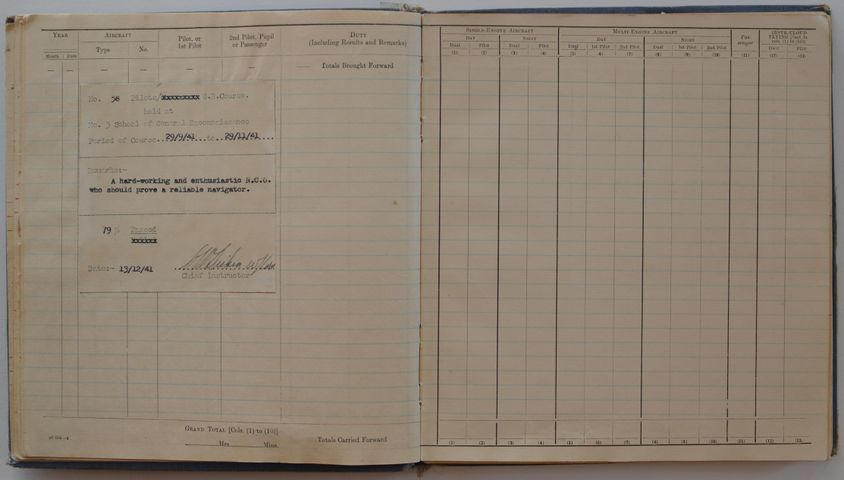 YEAR AIRCRAFT Pilot, or 1st Pilot 2nd Pilot, Pupil or Passenger DUTY (Including Results and Remarks)
Month Date Type No.
— — — — — — Totals Brought Forward
No. 58 Pilots/xxxxxxxxx G.R. Course.
held at
No. 3 School of General Reconnaissance
Period of Course 29/9/41 to 29/11/41
Remarks:-
A hard-working and enthusiastic N.C.O.
who should prove a reliable navigator.
79 % Passed
xxxxxx
Date:- 13/12/41
Chief Instructor
GRAND TOTAL [Cols. (1) to (10)]
Hrs. Mins.
Totals Carried Forward
SINGLE-ENGINE AIRCRAFT MULTI-ENGINE AIRCRAFT Pas-senger
DAY NIGHT DAY NIGHT
Dual Pilot Dual Pilot Dual 1st Pilot 2nd Pilot Dual 1st Pilot 2nd Pilot Dual Pilot
(1) (2) (3) (4) (5) (6) (7) (8) (9) (10) (11) (12) (13)
(1) (2) (3) (4) (5) (6) (7) (8) (9) (10) (11) (12) (13)